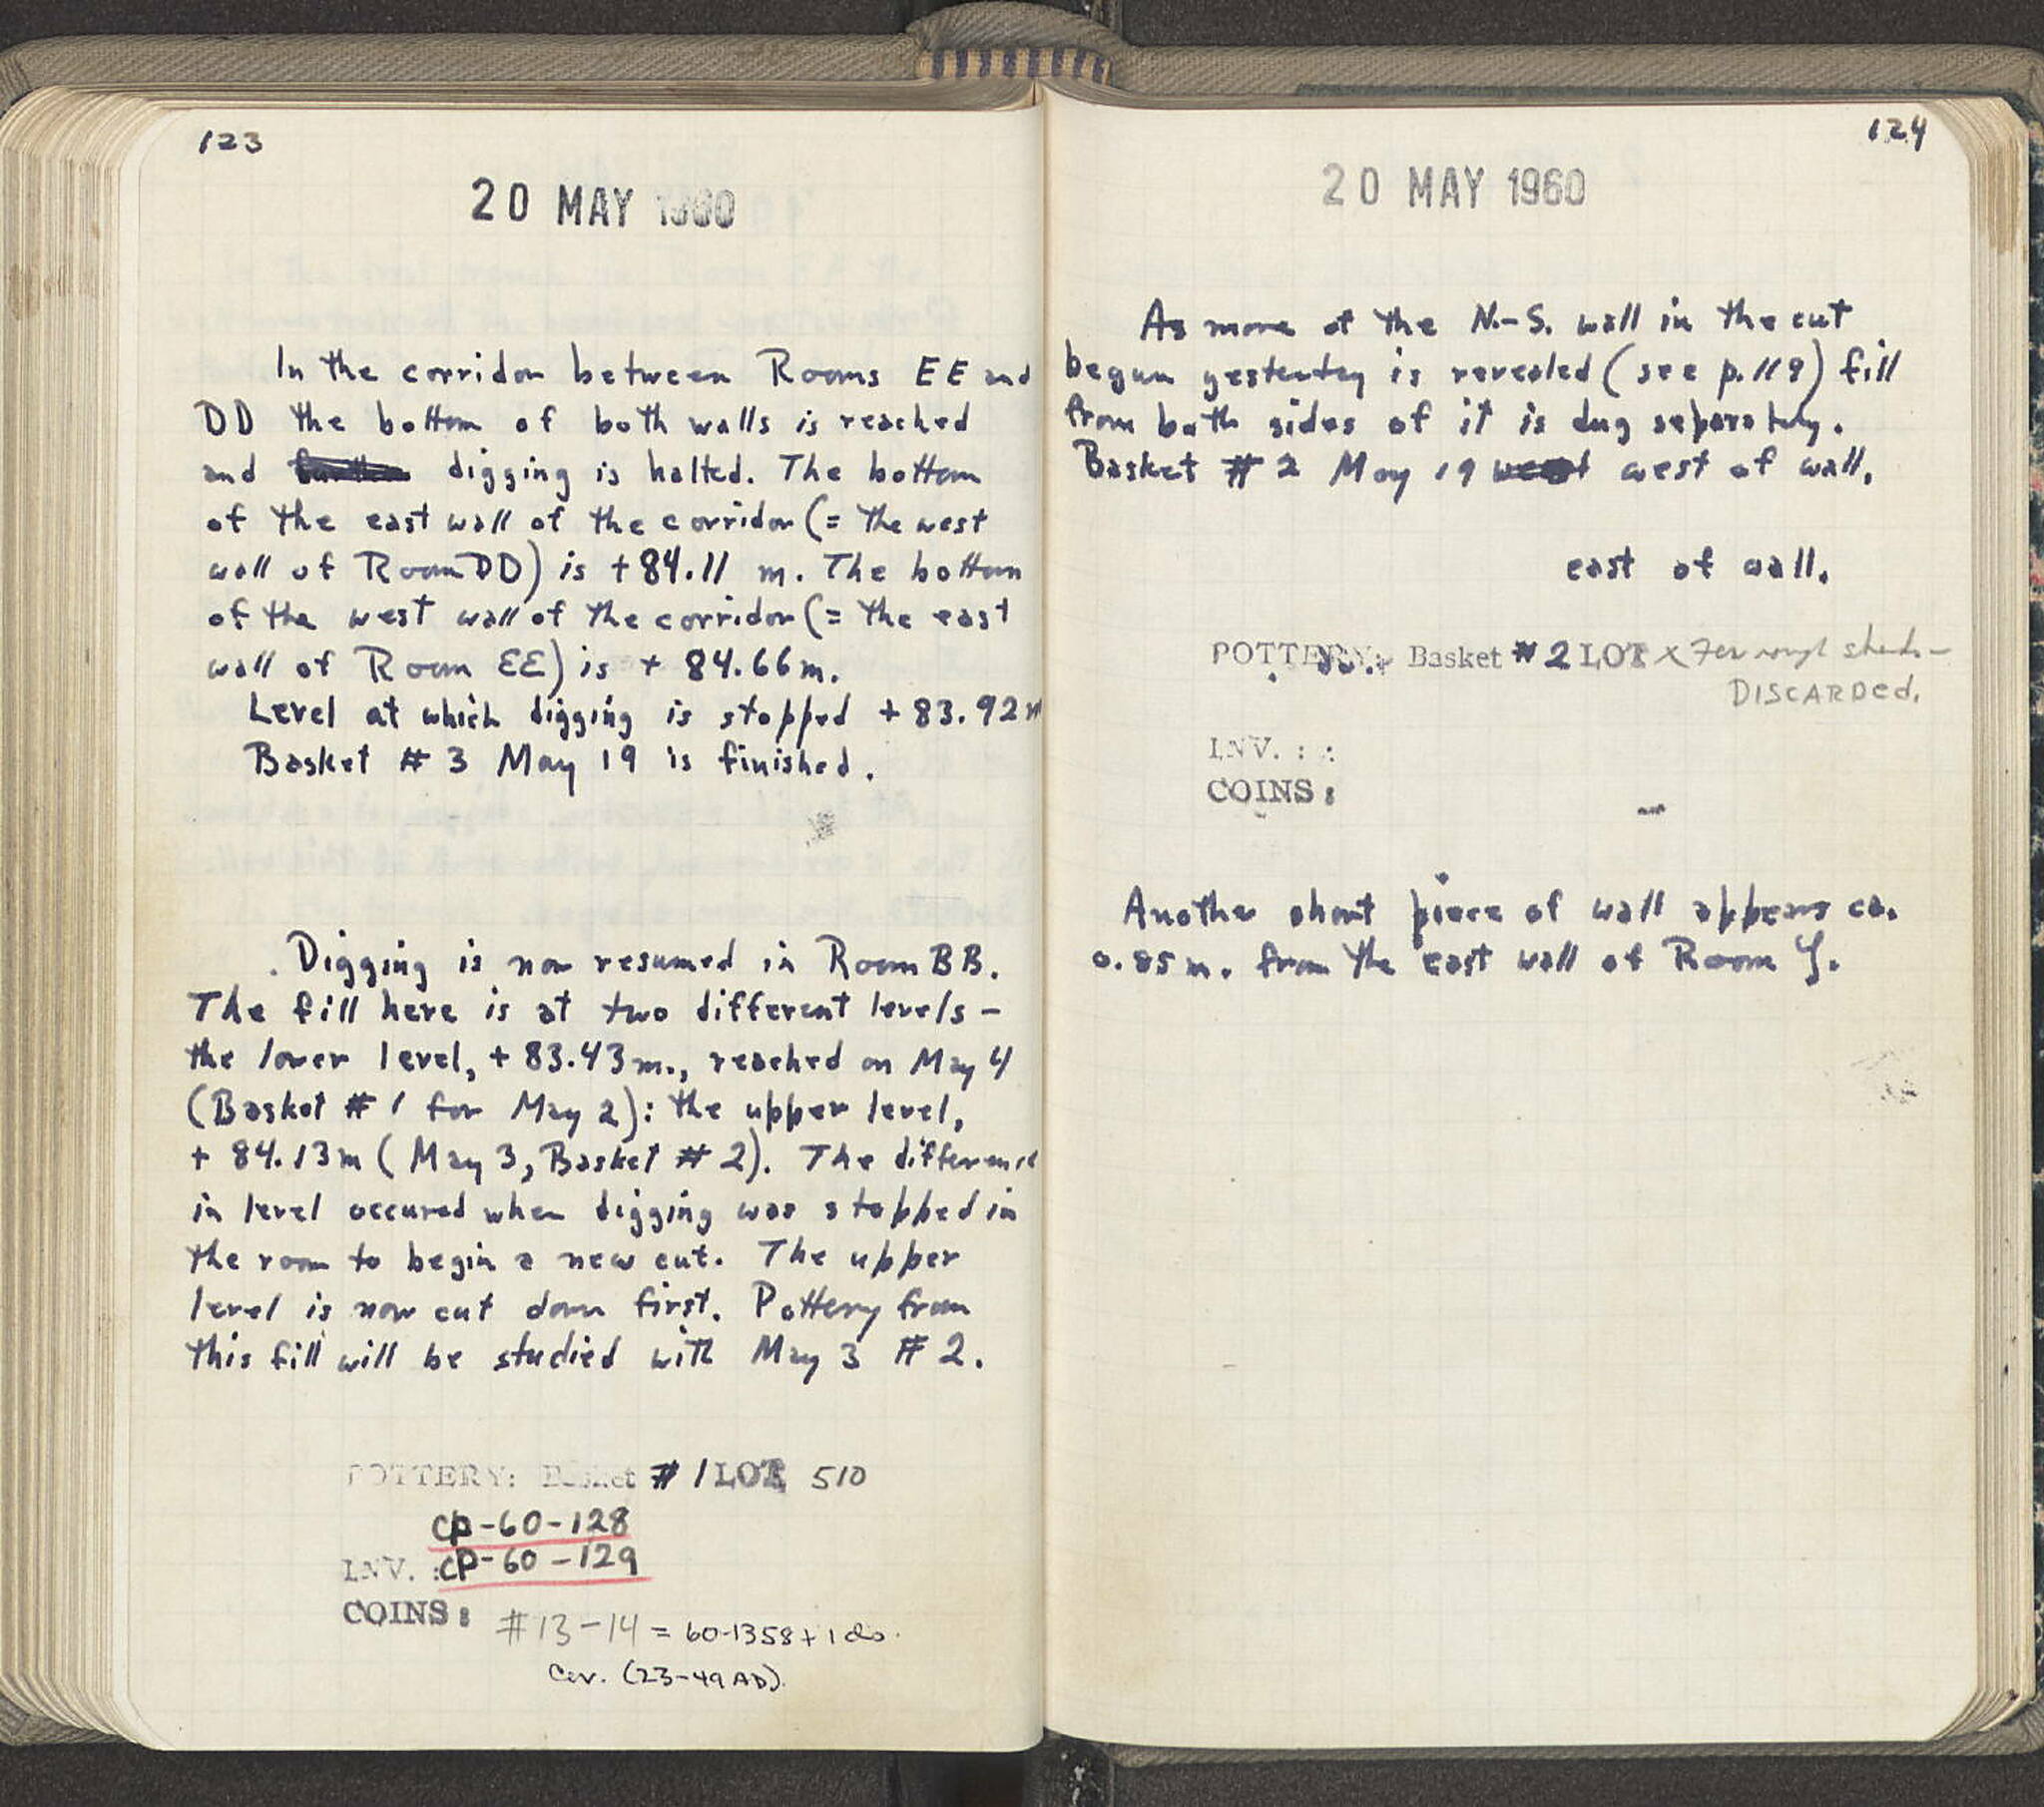 123
20 MAY 1960
In the corridor between Rooms EE and
DD the bottom of both walls is reached
and digging is halted. The bottom
of the east wall of the corridor (= the west
wall of Room DD) is +84.11 m. The bottom
of the west wall of the corridor (= the east
wall of Room EE) is + 84.66m.
Level at which digging is stopped + 83.92m
Basket # 3 May 19 is finished.
Digging is now resumed in Room BB.
The fill here is at two different levels -
the lower level, + 83.43m., reached on May 4
(Basket # 1 for May 2): the upper level,
+ 84.13m (May 3, Basket # 2). The difference
in level occured when digging was stopped in
the room to begin a new cut. The upper
level is now cut down first. Pottery from
this fill will be studied with May 3 # 2.
POTTERY: Basket # 1 LOT 510
CP-60-128
INV. : CP-60-129
COINS: #13-14 = 60-1358 + 1 do.
Cor. (23-49 AD).
124
20 MAY 1960
As more of the N.-S. wall in the cut
begun yesterday is revealed (see p. 118) fill
from both sides of it is dug separately.
Basket # 2 May 19 west of wall,
east of wall.
POTTERY: Basket # 2 LOT x Few rough sherds -
DISCARDED.
INV. :
COINS: -
Another short piece of wall appears ca.
0.85 m. from the east wall of Room Y.